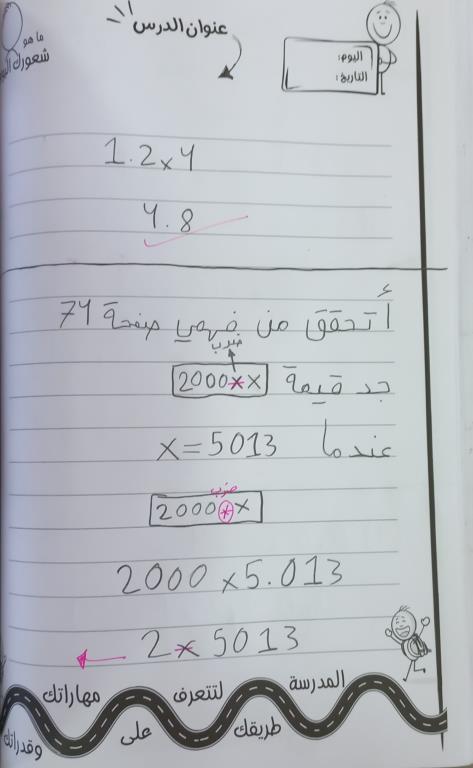 ما هو
شعورك
عنوان الدرس
اليوم:
التاريخ:
1.2 x 4
4.8
أتحقق من فهمي صفحة 74
ضرب
جد قيمة 2000 x x
عندما x = 5013
ضرب
2000 x x
2000 x 5.013
2 x 5013
المدرسة
لتتعرف
مهاراتك
طريقك
على
وقدراتك